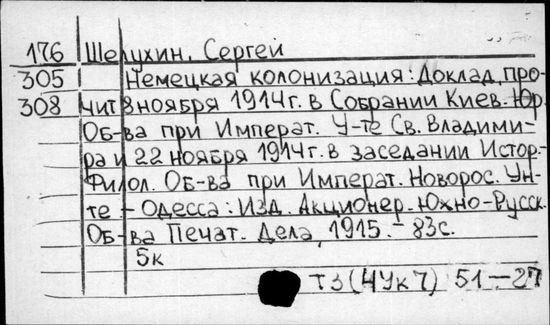 176 Шелухин, Сергей
305 Немецкая колонизация: Доклад, про-
308 чит 8 ноября 1914г. в Собрании Киев. Юр.
Об-ва при Императ. У-те Св. Владими-
ра и 22 ноября 1914г. в заседании Истор-
Филол. Об-ва при Императ. Новорос. Ун-
те - Одесса: Изд. Акционер. Южно-Русск.
Об-ва Печат. Дела, 1915. - 83с.
5к
Т3(4Ук7) 51-27